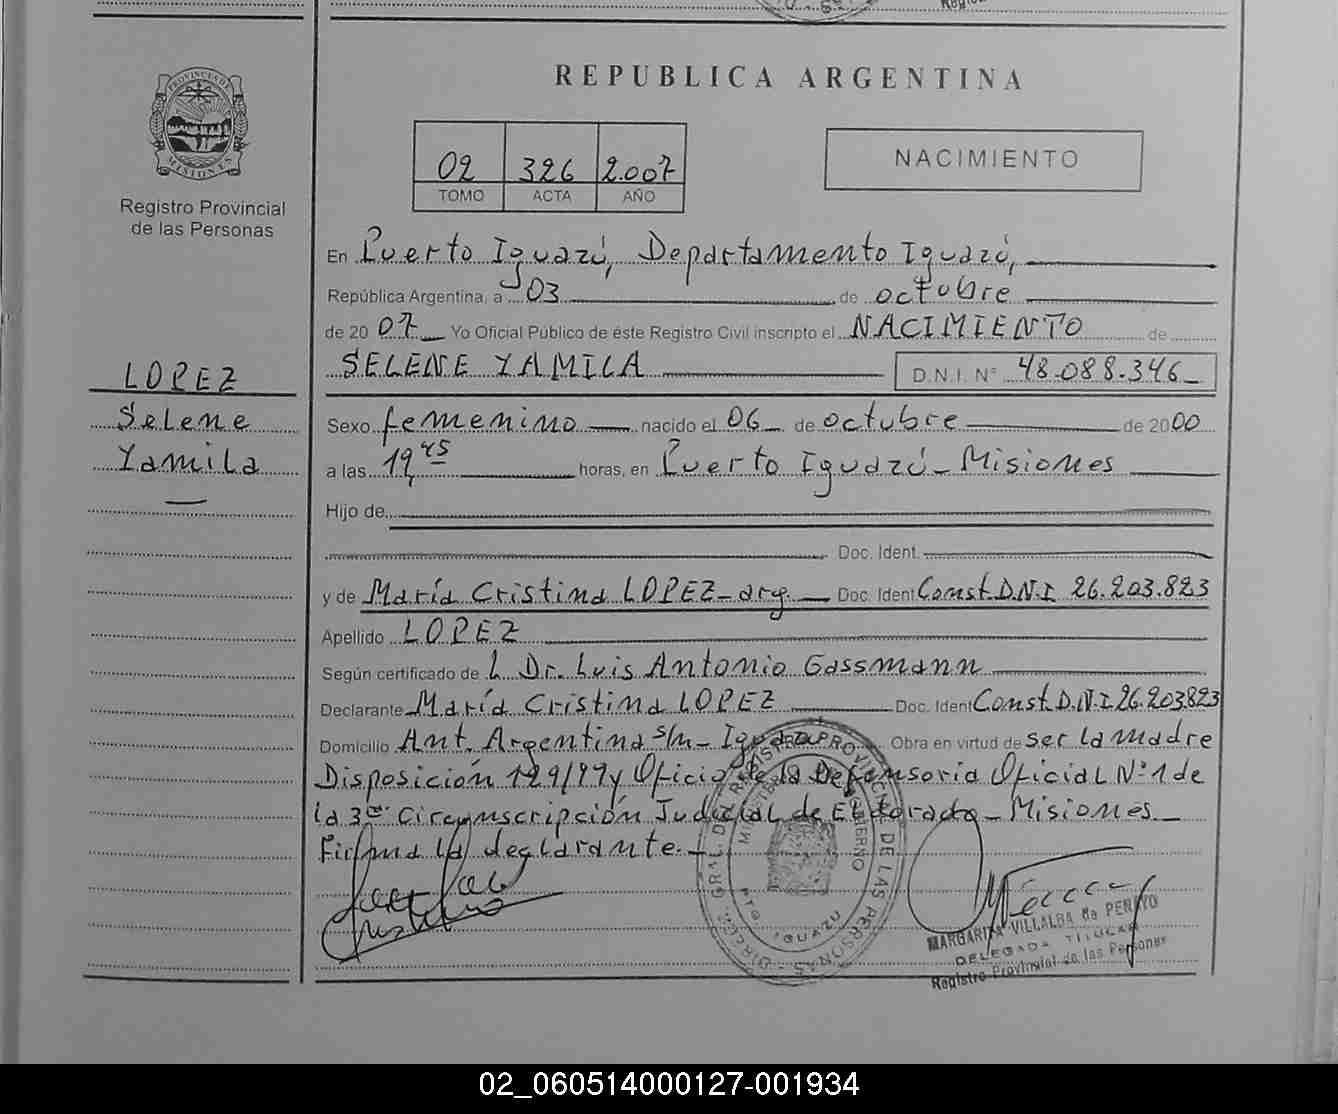 REPUBLICA ARGENTINA
PROVINCIA DE
MISIONES
Registro Provincial
de las Personas
02 326 2.007
TOMO ACTA AÑO
NACIMIENTO
En Puerto Iguazú, Departamento Iguazú,
República Argentina, a 03 de octubre
de 20 07 Yo Oficial Público de éste Registro Civil inscripto el NACIMIENTO de
SELENE YAMILA D.N.I. N° 48.088.346
LOPEZ
Selene
Yamila
Sexo femenino nacido el 06 de octubre de 2000
a las 19,45 horas, en Puerto Iguazú - Misiones
Hijo de
Doc. Ident.
y de María Cristina LOPEZ - arg. Doc. Ident Const. D.N.I 26.203.823
Apellido LOPEZ
Según certificado de L Dr. Luis Antonio Gassmann
Declarante María Cristina LOPEZ Doc. Ident Const. D.N.I 26.203823
Domicilio Ant. Argentina s/n - Iguazú Obra en virtud de ser la madre
Disposición 129/99 y Oficio de la Defensoria Oficial N°1 de
la 3ra Circunscripción Judicial de Eldorado - Misiones
Firma la declarante.
DIRECC. GRAL. DEL REGISTRO PROVINCIAL DE LAS PERSONAS
PTO IGUAZU
MARGARITA VILLALBA de PENAYO
DELEGADA TITULAR
Registro Provincial de las Personas
02_060514000127-001934